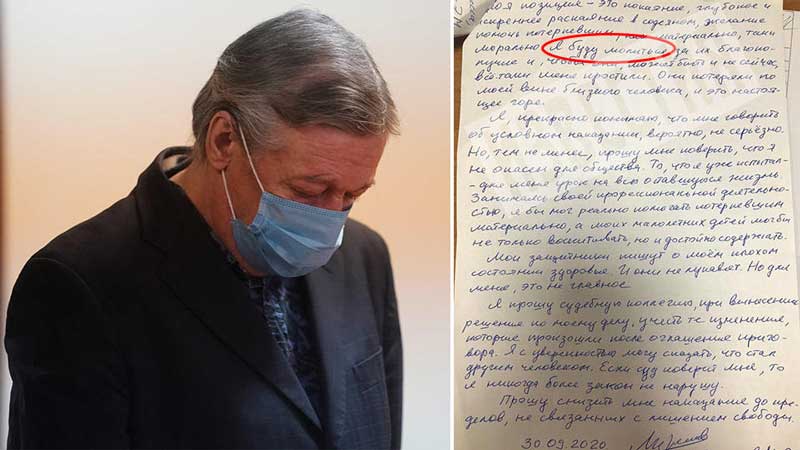 моя позиция – это покаяние, глубокое и
искреннее раскаяние в содеяном, желание
помочь потерпевшим, как материально, так и
морально. Я буду молиться за их благопо-
лучие и, чтобы они, может быть и не сейчас,
всё-таки меня простили. Они потеряли по
моей вине близкого человека, и это настоя-
щее горе.
Я, прекрасно понимаю, что мне говорить
об условном наказании, вероятно, не серьёзно.
Но, тем не менее, прошу мне поверить, что я
не опасен для общества. То, что я уже испытал -
- для меня урок на всю оставшуюся жизнь.
Занимаясь своей профессиональной деятельно-
стью, я бы мог реально помогать потерпевшим
материально, а моих малолетних детей мог бы
не только воспитывать, но и достойно содержать.
Мои защитники пишут о моём плохом
состоянии здоровья. И они не лукавят. Но для
меня, это не главное.
Я прошу судебную коллегию, при вынесении
решения по моему делу, учесть те изменения,
которые произошли после оглашения приго-
вора. Я с уверенностью могу сказать, что стал
другим человеком. Если суд поверит мне, то
я никогда более закон не нарушу.
Прошу снизить мне наказание до пре-
делов, не связанных с лишением свободы.
30.09.2020